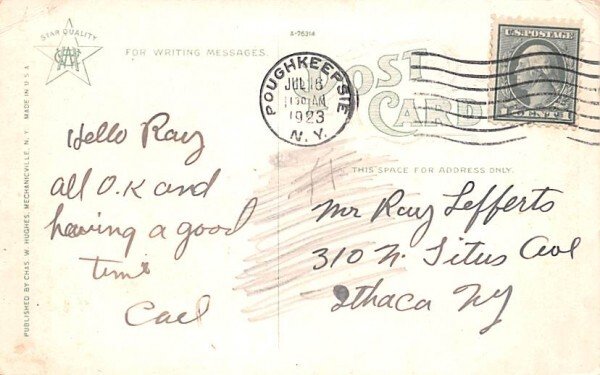 STAR QUALITY
FOR WRITING MESSAGES.
A-76314
POST
CARD
U.S. POSTAGE
CENTS
POUGHKEEPSIE
JUL 16
AM
1923
N.Y.
THIS SPACE FOR ADDRESS ONLY.
Hello Ray
all O.K and
having a good
time
Carl
Mr Ray Lefferts
310 N. Titus Ave
Ithaca NY
PUBLISHED BY CHAS. W. HUGHES, MECHANICVILLE, N. Y. MADE IN U.S.A